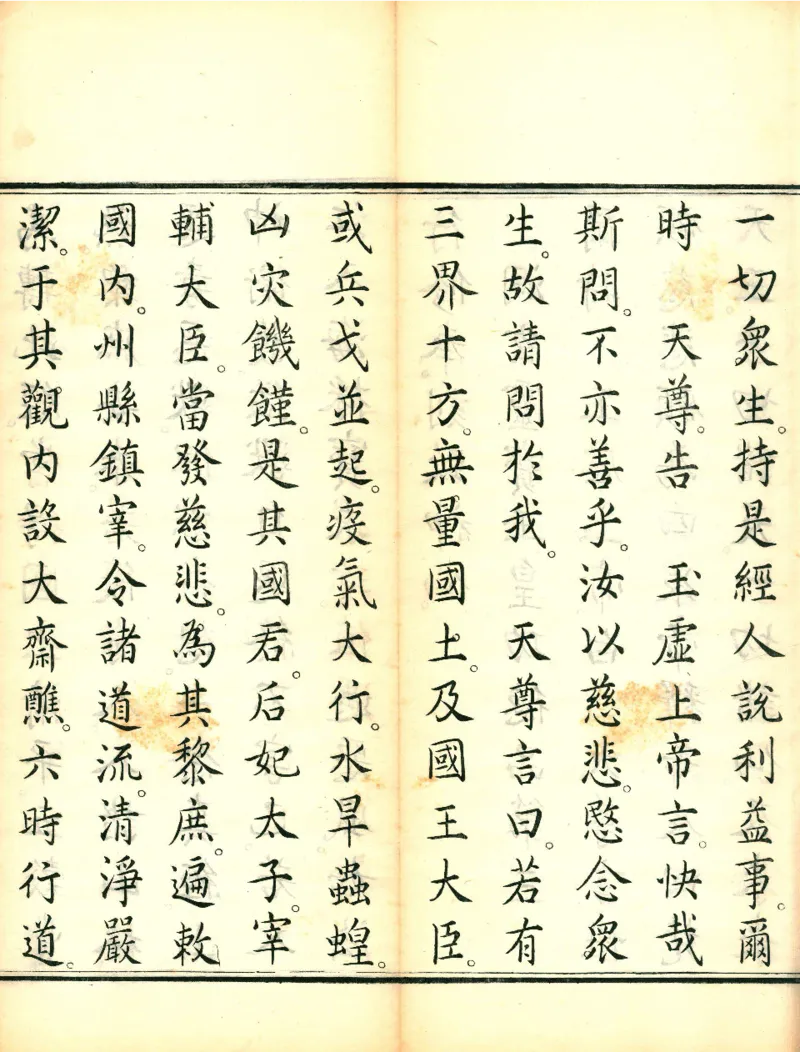 一切衆生。持是經人說利益事。爾
時　天尊。告　玉虛上帝言。快哉
斯問。不亦善乎。汝以慈悲。愍念衆
生。故請問於我。　天尊言曰。若有
三界十方。無量國土。及國王大臣。
或兵戈並起。疫氣大行。水旱蟲蝗。
凶灾饑饉。是其國君。后妃太子。宰
輔大臣。當發慈悲。為其黎庶。遍敕
國內。州縣鎮宰。令諸道流。清淨嚴
潔。于其觀內設大齋醮。六時行道。